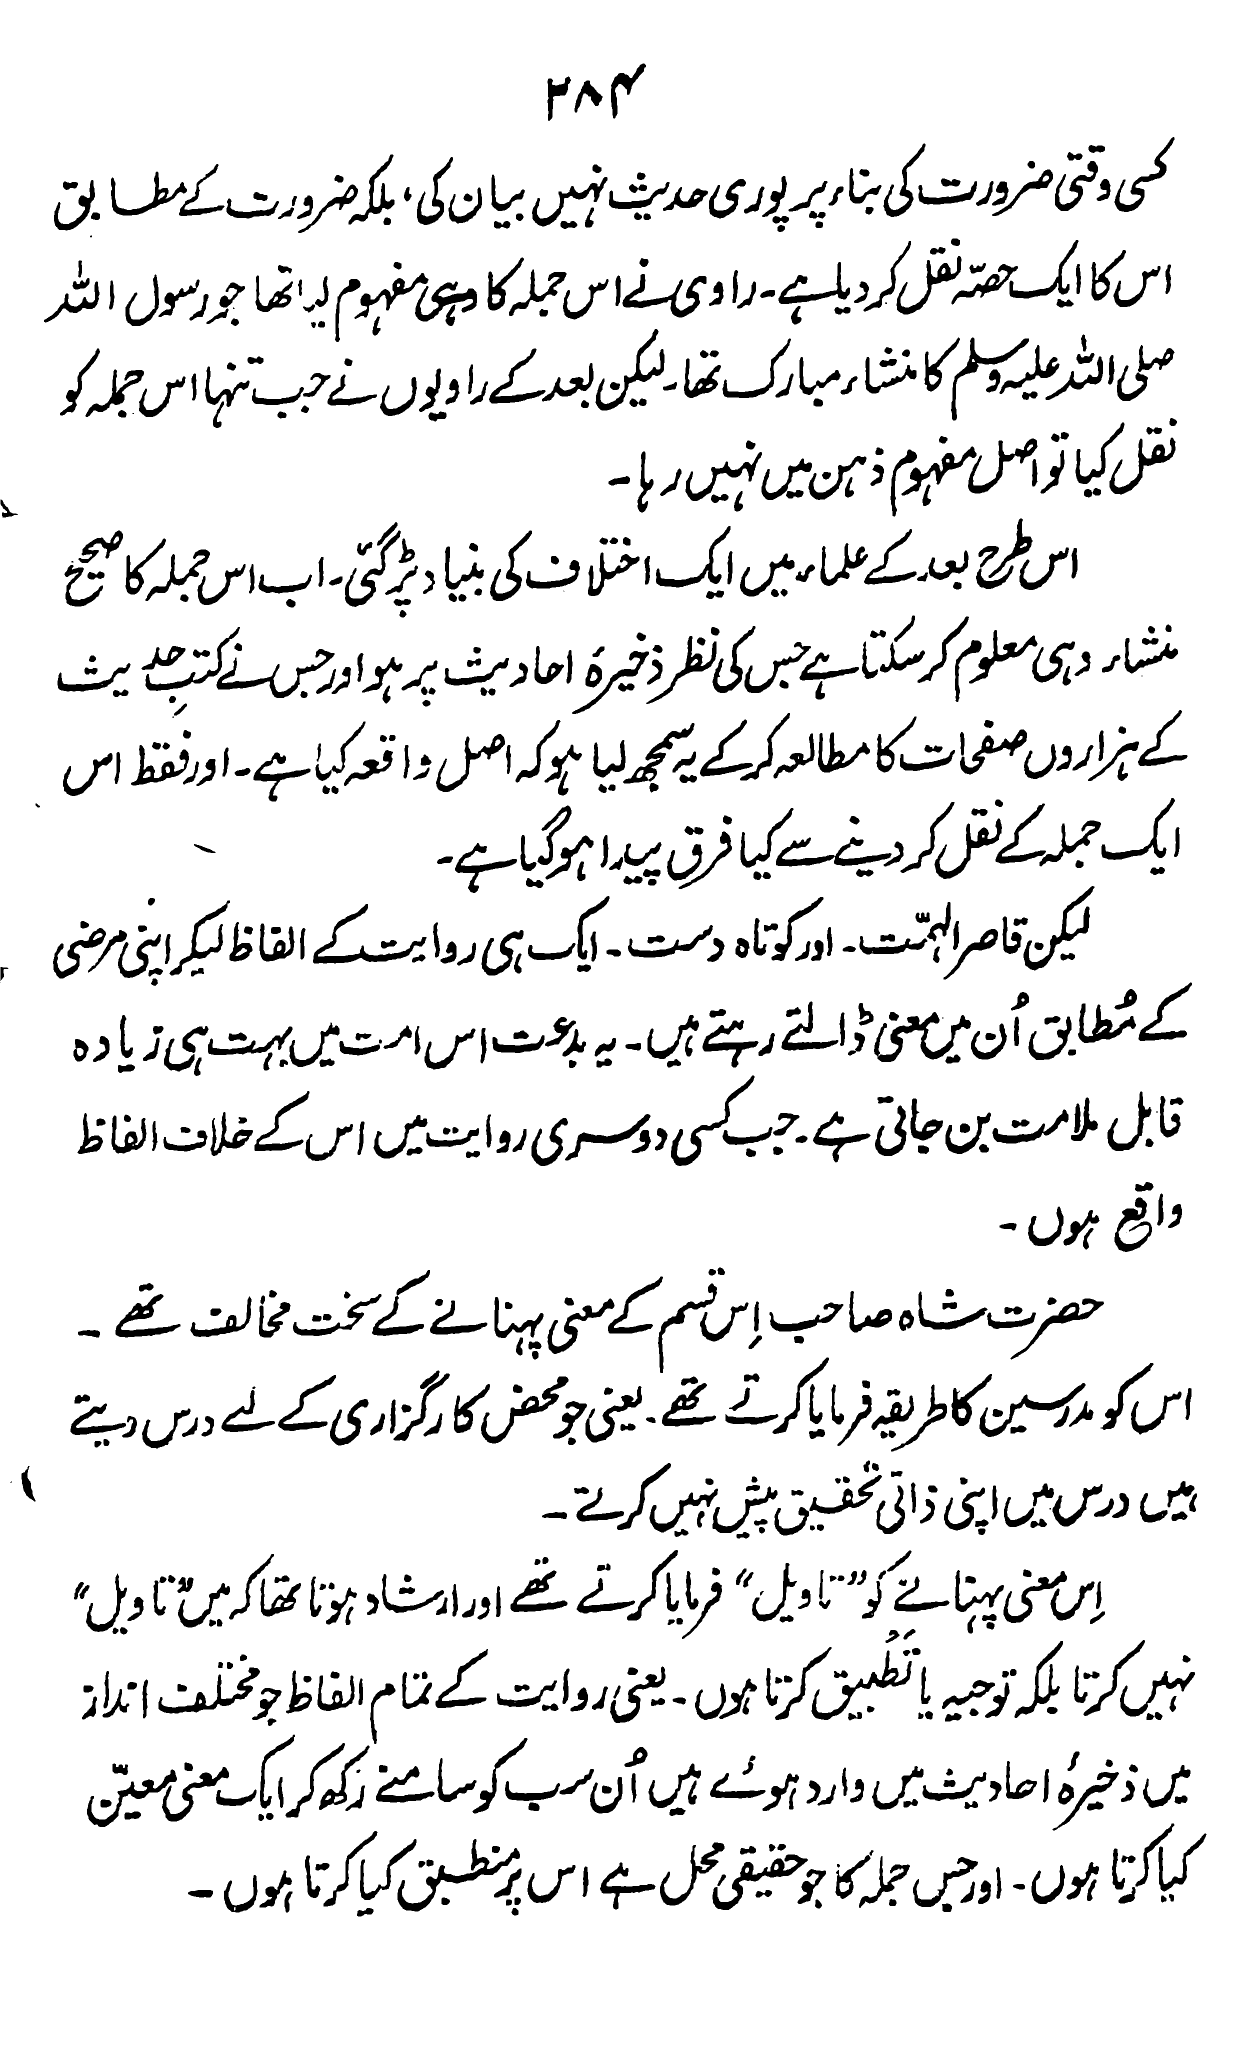 ۲۸۴
کسی وقتی ضرورت کی بناء پر پوری حدیث نہیں بیان کی، بلکہ ضرورت کے مطابق
اس کا ایک حصّہ نقل کر دیا ہے۔ راوی نے اس جملہ کا وہی مفہوم لیا تھا جو رسول اللہ
صلی اللہ علیہ وسلم کا منشاء مبارک تھا۔ لیکن بعد کے راویوں نے جب تنہا اس جملہ کو
نقل کیا تو اصل مفہوم ذہن میں نہیں رہا۔
اس طرح بعد کے علماء میں ایک اختلاف کی بنیاد پڑ گئی۔ اب اس جملہ کا صحیح
منشاء وہی معلوم کر سکتا ہے جس کی نظر ذخیرۂ احادیث پر ہو اور جس نے کتبِ حدیث
کے ہزاروں صفحات کا مطالعہ کر کے یہ سمجھ لیا ہو کہ اصل واقعہ کیا ہے۔ اور فقط اس
ایک جملہ کے نقل کر دینے سے کیا فرق پیدا ہو گیا ہے۔
لیکن قاصر الہمّت۔ اور کوتاہ دست۔ ایک ہی روایت کے الفاظ لیکر اپنی مرضی
کے مُطابق اُن میں معنی ڈالتے رہتے ہیں۔ یہ بدعت اس امت میں بہت ہی زیادہ
قابل ملامت بن جاتی ہے۔ جب کسی دوسری روایت میں اس کے خلاف الفاظ
واقع ہوں۔
حضرت شاہ صاحب اِس قسم کے معنی پہنانے کے سخت مخالف تھے۔
اس کو مدرسین کا طریقہ فرمایا کرتے تھے۔ یعنی جو محض کارگزاری کے لئے درس دیتے
ہیں درس میں اپنی ذاتی تحقیق پیش نہیں کرتے۔
اِس معنی پہنانے کو ”تاویل“ فرمایا کرتے تھے اور ارشاد ہوتا تھا کہ میں ”تاویل“
نہیں کرتا بلکہ توجیہ یا تَطُبِیق کرتا ہوں۔ یعنی روایت کے تمام الفاظ جو مختلف انداز
میں ذخیرۂ احادیث میں وارد ہوئے ہیں اُن سب کو سامنے رکھ کر ایک معنی معیّن
کیا کرتا ہوں۔ اور جس جملہ کا جو حقیقی محل ہے اس پر منطبق کیا کرتا ہوں۔